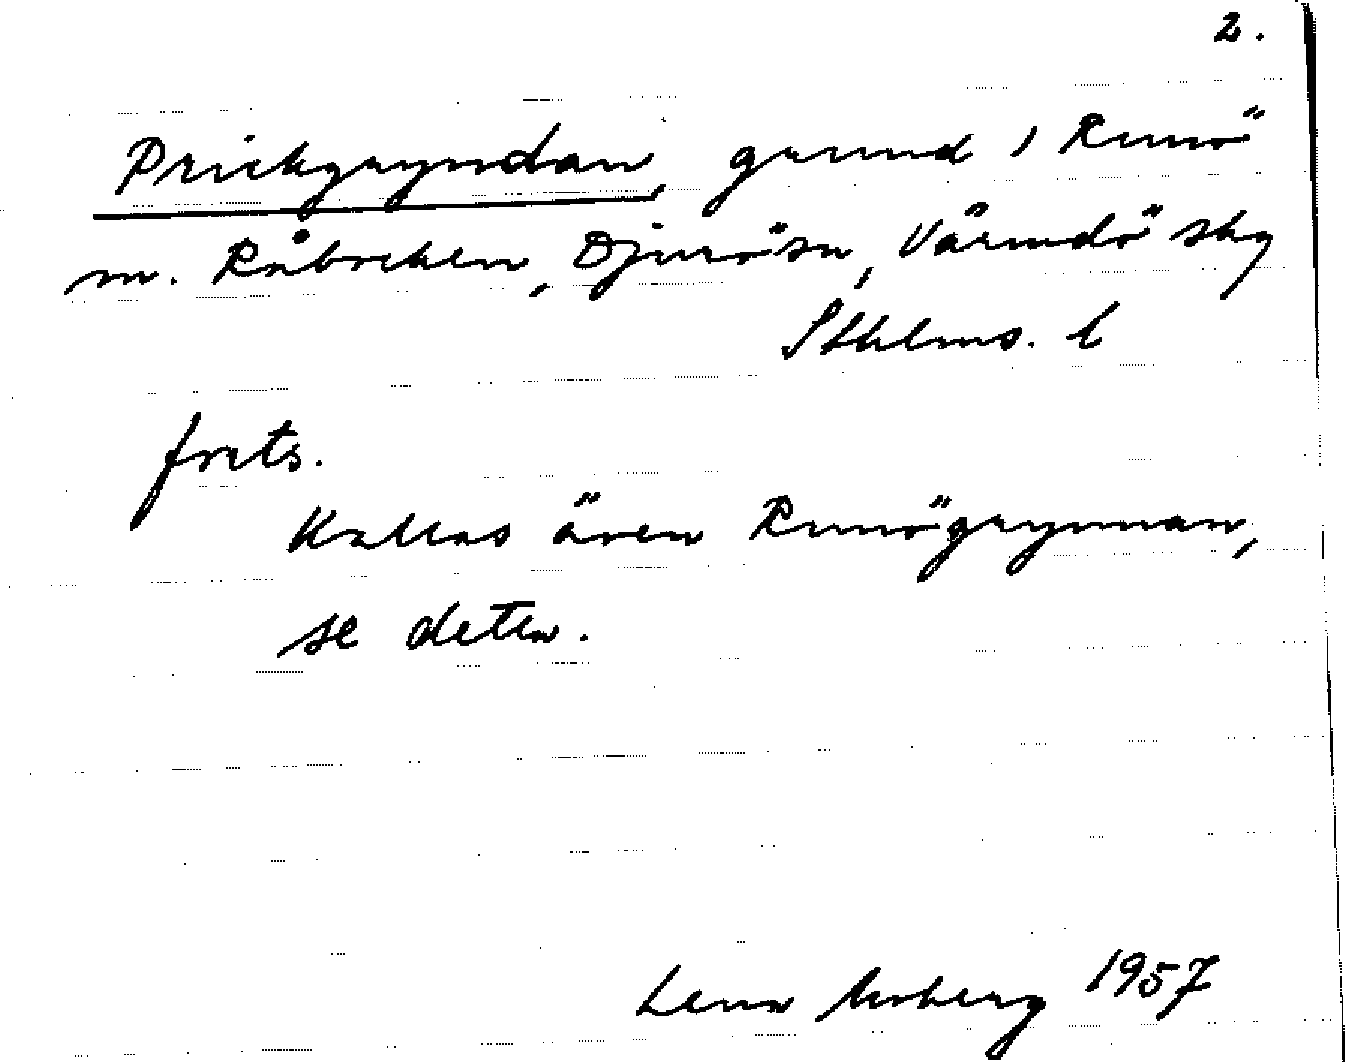 2.
Prickgryndan, grund i Runö
m. Råbocken, Djurö sn, Värmdö sky
Sthlms. l
forts.
Kallas även Runögrynnan,
se detta.
Lena Moberg 1957